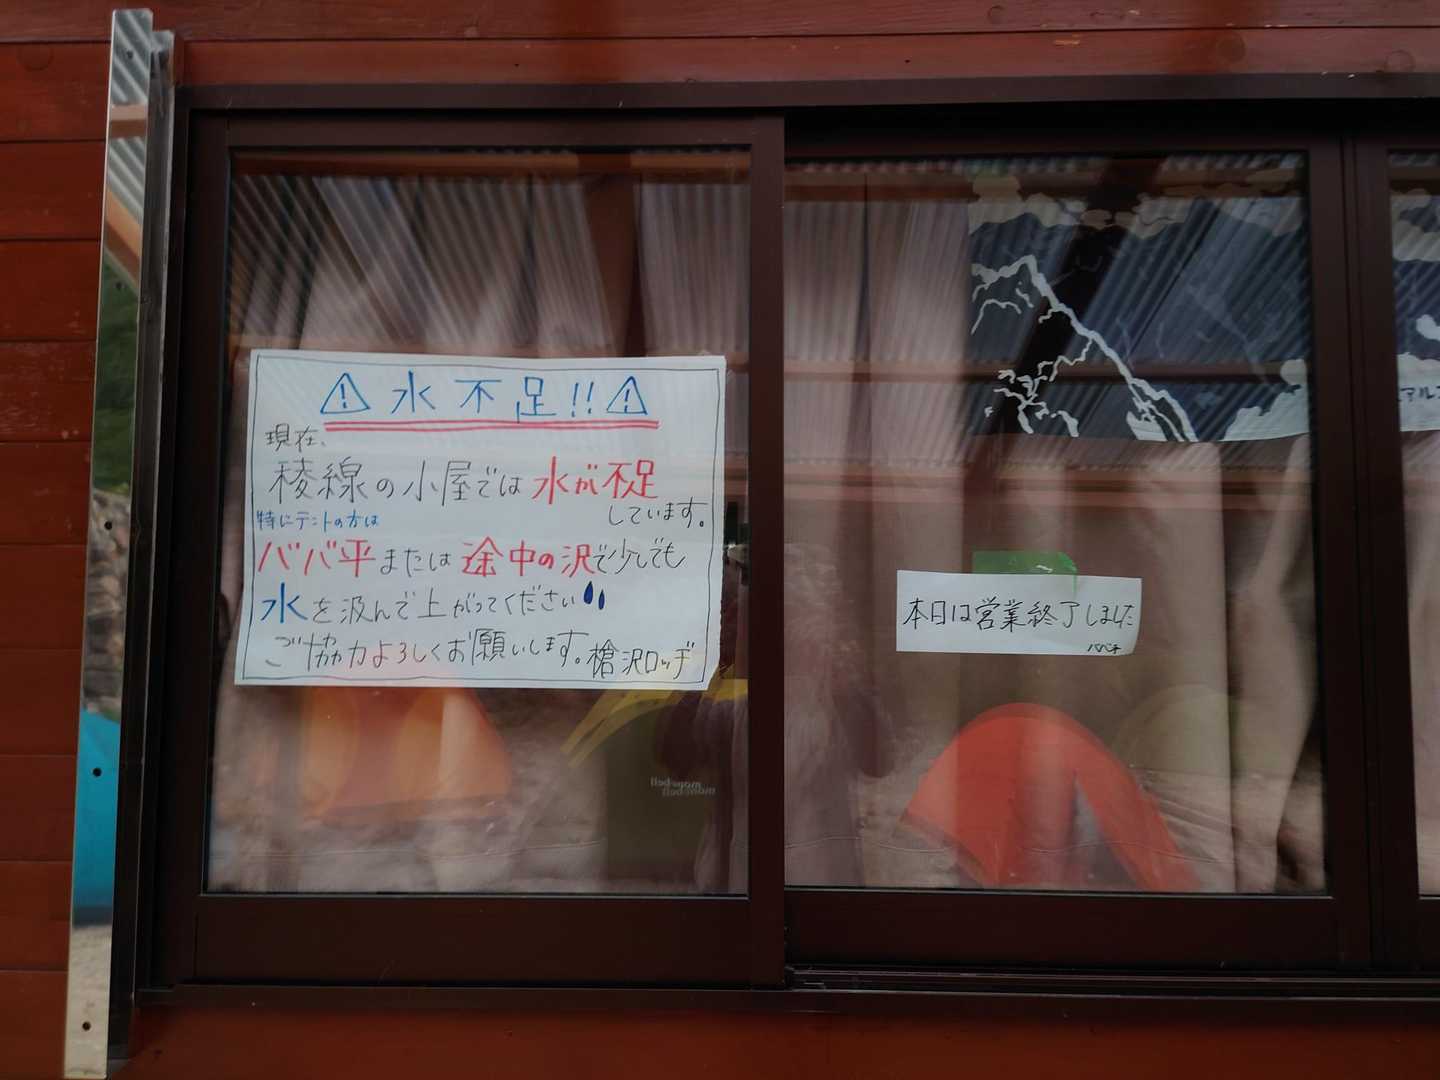 ⚠水不足!!⚠
現在、
稜線の小屋では水が不足
しています。
特にテントの方は
ババ平または途中の沢で少しでも
水を汲んで上がってください
ご協力よろしくお願いします。槍沢ロッヂ
本日は営業終了しました
ババ平
アルプ
mont-bell
mont-bell